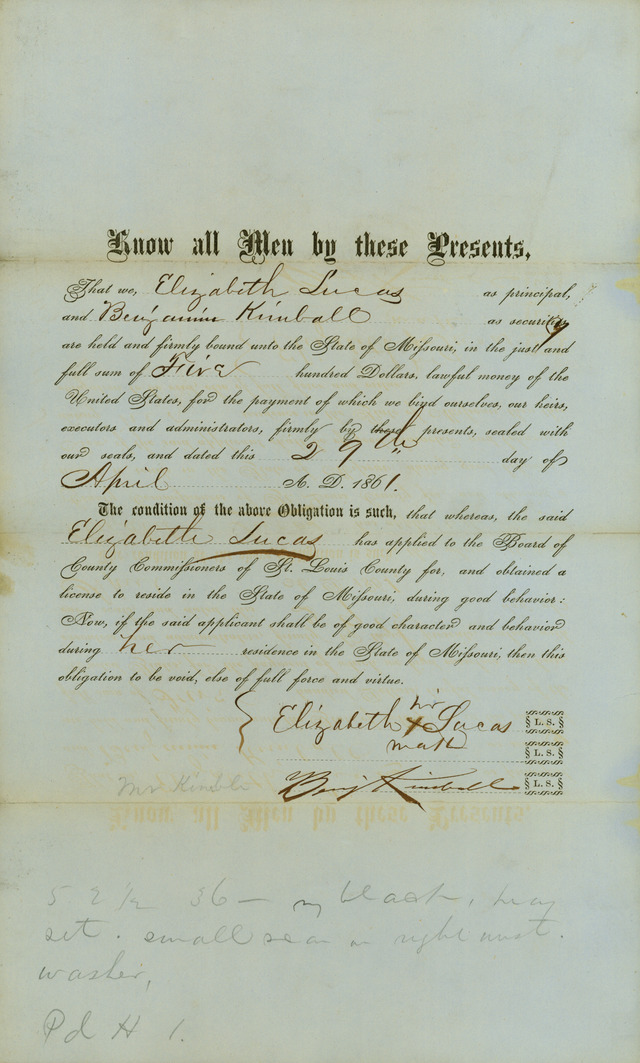 Know all Men by these Presents,
That we, Elizabeth Lucas as principal,
and Benjamin Kimball as security
are held and firmly bound unto the State of Missouri, in the just and
full sum of Five hundred Dollars, lawful money of the
United States, for the payment of which we bind ourselves, our heirs,
executors and administrators, firmly by these presents, sealed with
our seals, and dated this 29th day of
April A. D. 1861.
The condition of the above Obligation is such, that whereas, the said
Elizabeth Lucas has applied to the Board of
County Commissioners of St. Louis County for, and obtained a
license to reside in the State of Missouri, during good behavior:
Now, if the said applicant shall be of good character and behavior
during her residence in the State of Missouri, then this
obligation to be void, else of full force and virtue.
her
Elizabeth X Lucas L. S.
mark L. S.
Mr Kimble Benj Kimball L. S.
5 2 1/2 36 — black, hvy
set. small scar on right wrist.
washer,
Pd H 1.